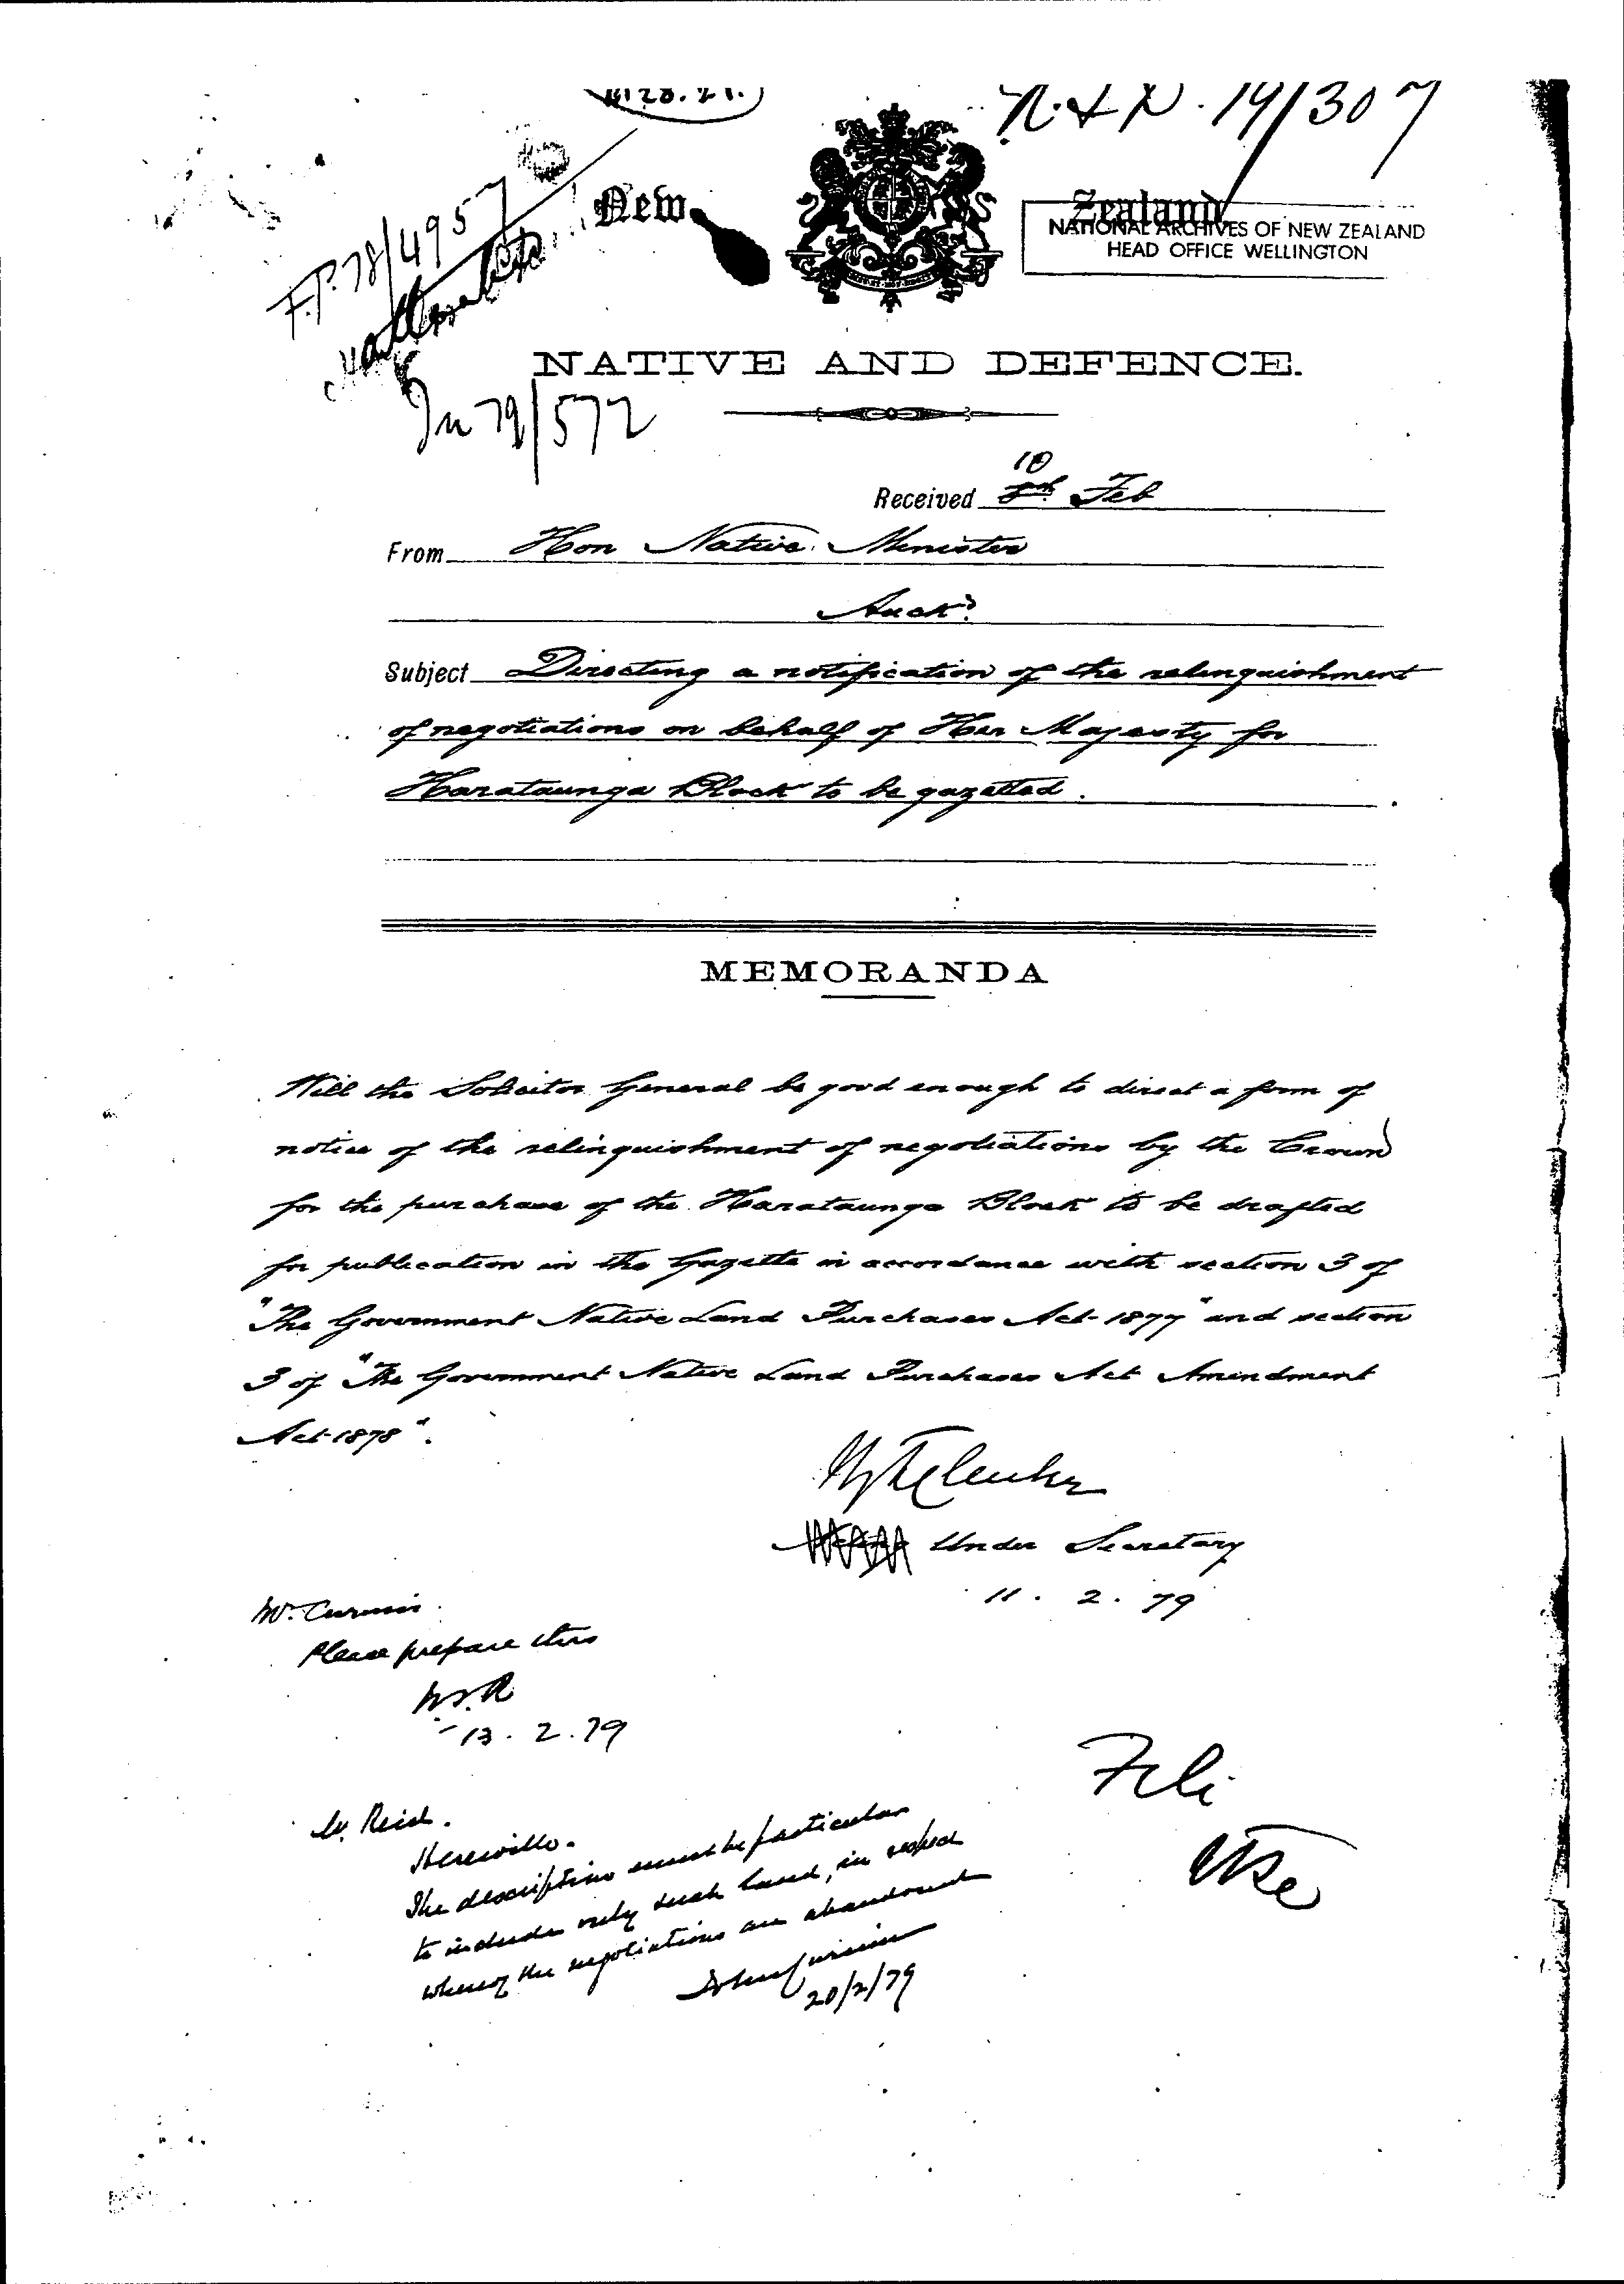 N & D. 19/307
New Zealand
NATIONAL ARCHIVES OF NEW ZEALAND
HEAD OFFICE WELLINGTON
F.P. 78/4957
NATIVE AND DEFENCE.
In 79/572
10
Received Feb
From Hon Native Minister
Auckd.
Subject Directing a notification of the relinquishment
of negotiations on behalf of Her Majesty for
Harataunga Block to be gazetted.
MEMORANDA
Will the Solicitor General be good enough to direct a form of
notice of the relinquishment of negotiations by the Crown
for the purchase of the Harataunga Block to be drafted
for publication in the Gazette in accordance with section 3 of
"The Government Native Land Purchases Act 1877" and section
3 of "The Government Native Land Purchases Act Amendment
Act 1878".
Under Secretary
11. 2. 79
Mr. Curnin.
Please prepare this
W.S.R
13. 2. 79
File
Mr. Reid.
Herewith.
The description must be particular
to include only such land, in respect
whereof the negotiations are abandoned
John Curnin
20/2/79